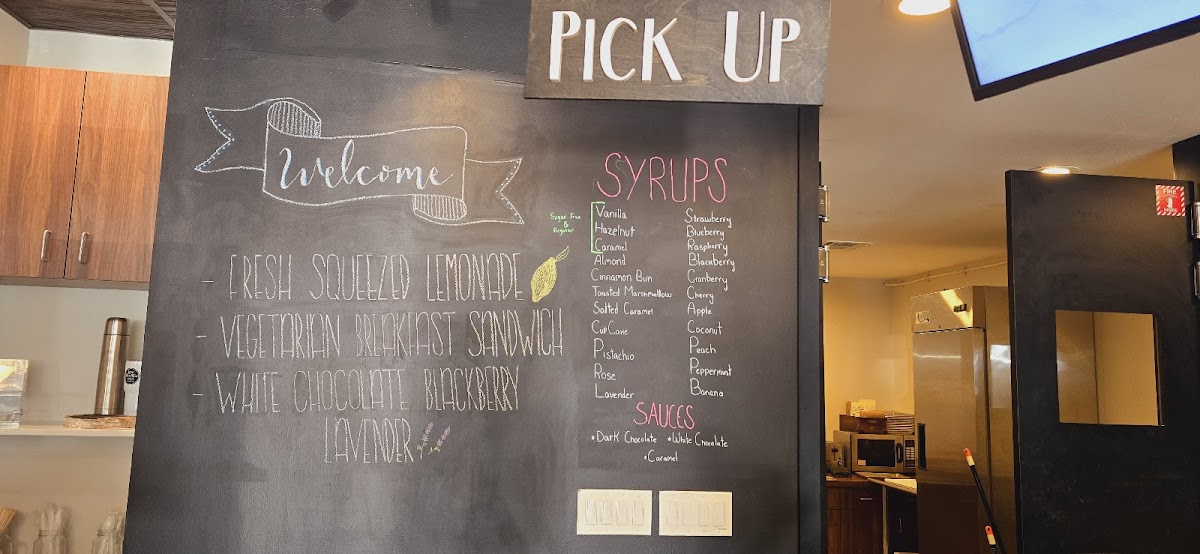 PICK UP
Welcome
- FRESH SQUEEZED LEMONADE
- VEGETARIAN BREAKFAST SANDWICH
- WHITE CHOCOLATE BLACKBERRY
LAVENDER
SYRUPS
Sugar Free
&
Regular
Vanilla
Hazelnut
Caramel
Almond
Cinnamon Bun
Toasted Marshmallow
Salted Caramel
CupCake
Pistachio
Rose
Lavender
Strawberry
Blueberry
Raspberry
Blackberry
Cranberry
Cherry
Apple
Coconut
Peach
Peppermint
Banana
SAUCES
• Dark Chocolate • White Chocolate
• Caramel
FIRE